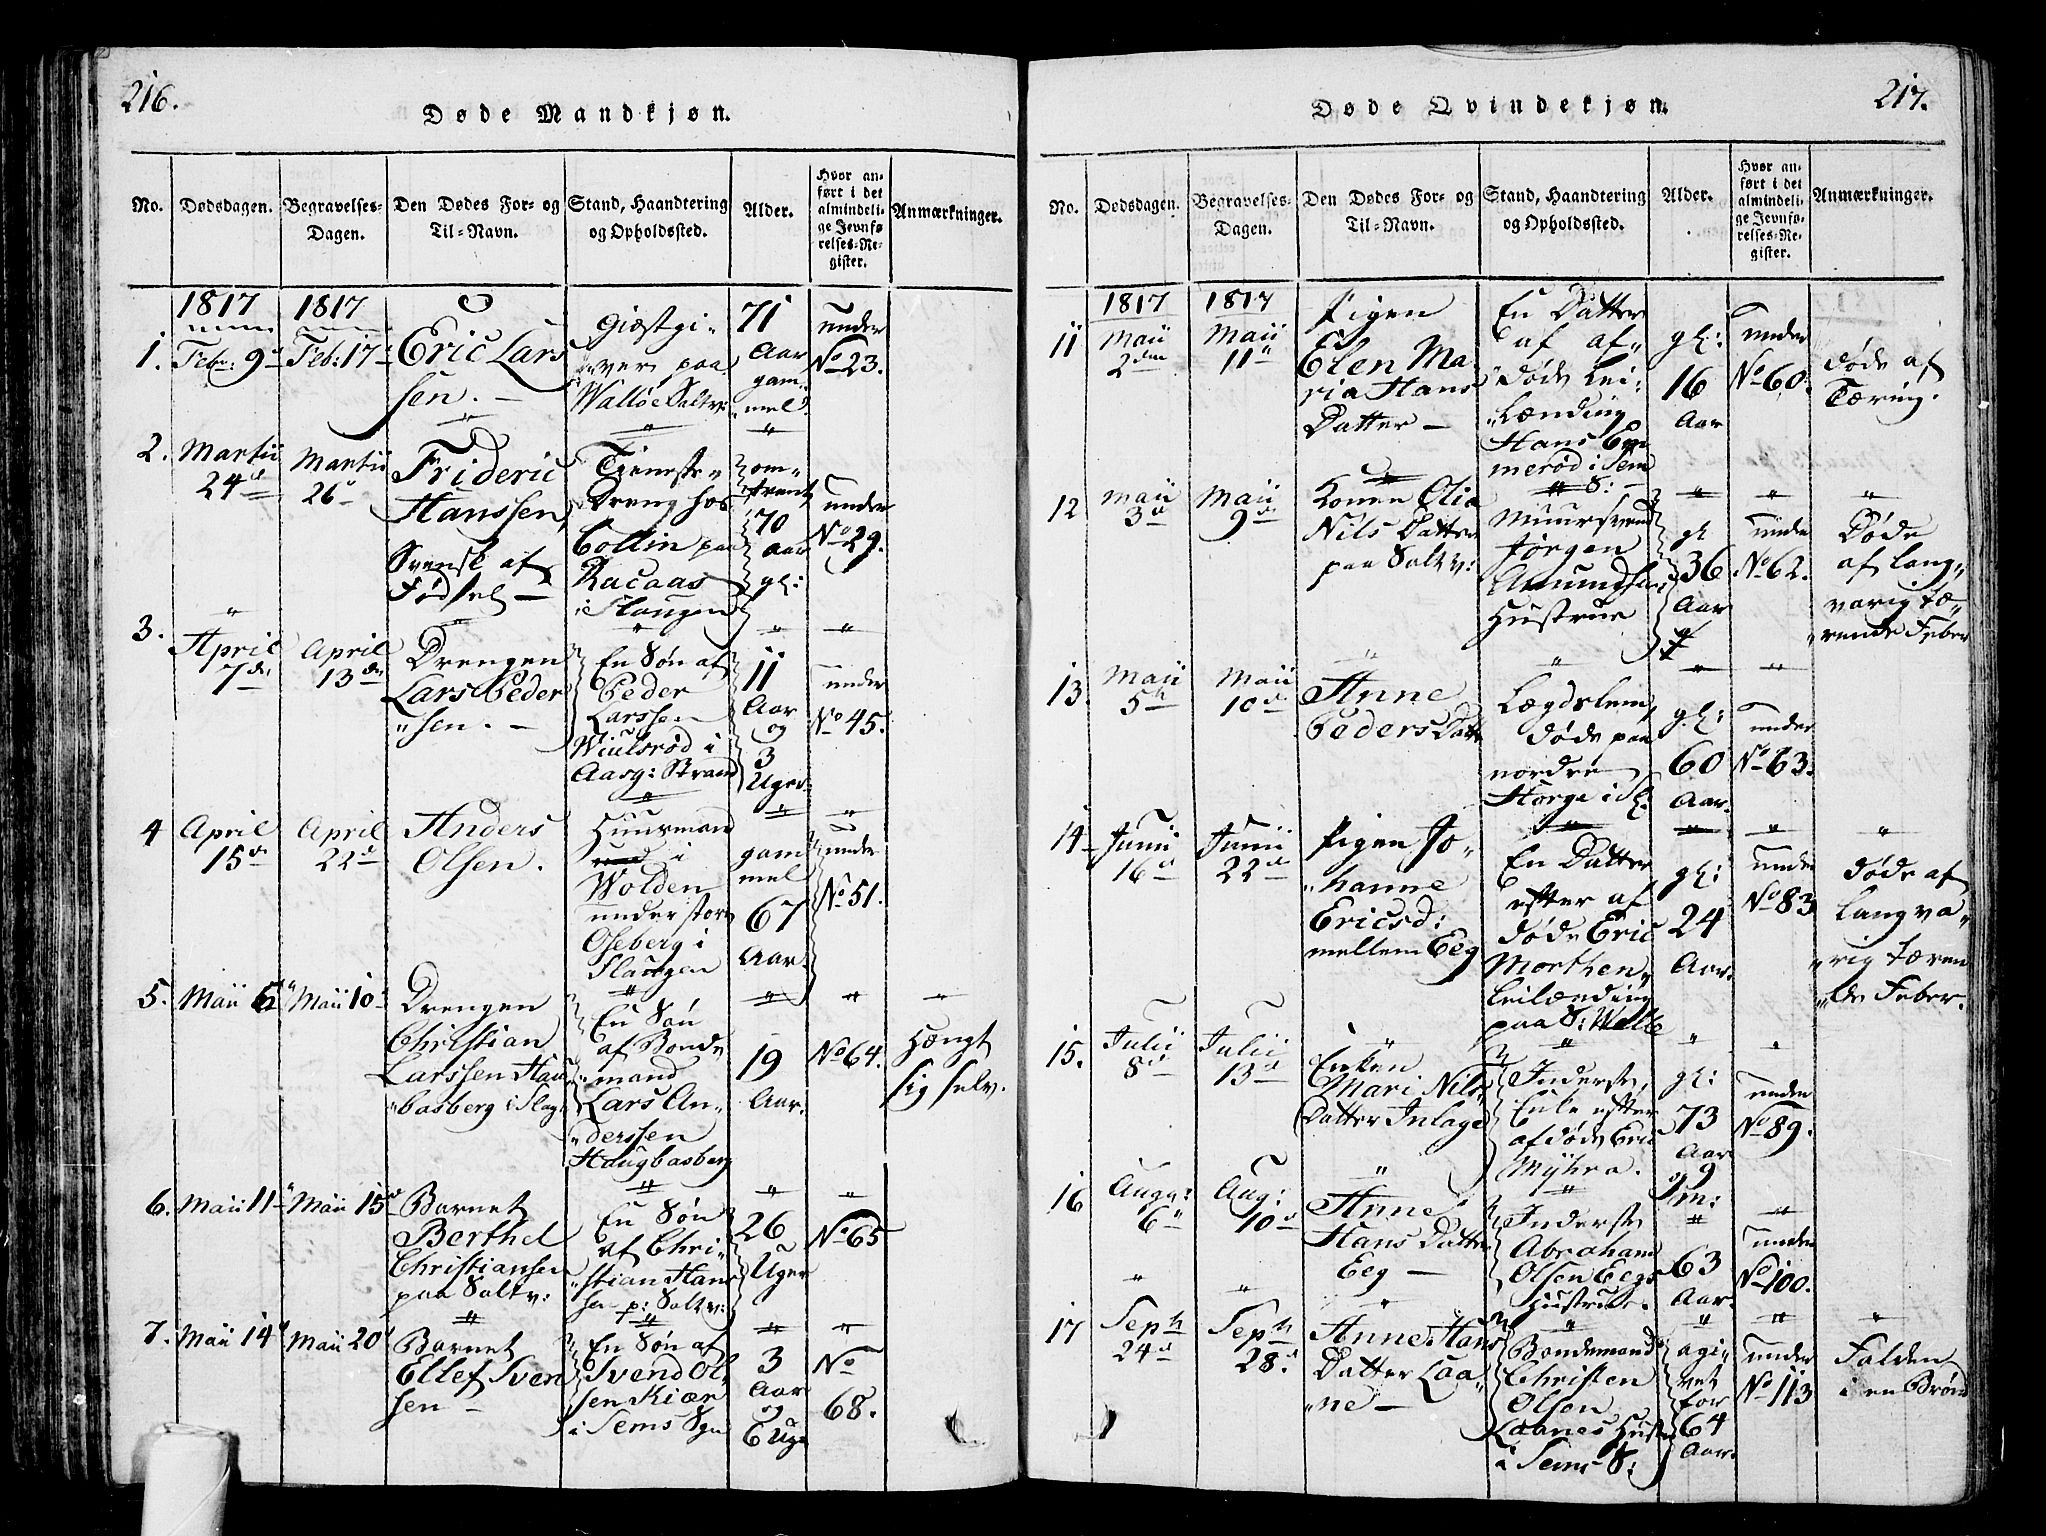 216.
Døde Mandkjøn.
No.
Dødsdagen.
Begravelses-
Dagen.
Den Dødes For- og
Til-Navn.
Stand, Haandtering
og Opholdssted.
Alder.
Hvor an-
ført i det
almindeli-
ge Jevnfø-
relses-Re-
gister.
Anmærkninger.
1817
1817
1.
Febr: 9
Feb: 17
Eric Lars
sen. —
Giæstgi-
ver paa
Walløe Saltv:
71
Aar
gam
mel
under
No 23.
2.
Martii
24
Martii
26
Frideric
Hanssen,
Svensk af
Fødsel —
Tieneste
Dreng hos
Collin paa
i Slaugen
om
trent
70
aar
gl:
under
No 29.
3.
April
7de
April
13de
Drengen
Lars Peder
sen. —
En Søn af
Peder
Larssen
Wiulsrød i
Aasg: Strand
11
Aar
og
3
Uger
under
No 45.
4
April
15de
April
22d
Anders
Olsen.
Huusmand
i
Wolden
under store
Oseberg i
Slaugen
gam
mel
67
Aar.
under
No 51.
5.
Maii 6
Maii 10
Drengen
Christian
Larssen Hau
basberg i Slag:
En Søn
af Bonde
mand
Lars An-
derssen
Haugbasberg
19
Aar.
No 64.
Hængt
sig selv.
6.
Maii 11
Maii 15
Barnet
Berthel
Christiansen
paa Saltv:
En Søn
af Chri-
stian Hans
sen p: Saltv:
26
Uger
No 65
7.
Maii 14
Maii 20
Barnet
Ellef Sven
sen —
En Søn af
Svend Ol-
sen Kiær
i Sems Sgn
3
Aar
og
6 Uge
No
68.
217.
Døde Qvindekjøn.
No.
Dødsdagen.
Begravelses-
Dagen.
Den Dødes For- og
Til-Navn.
Stand, Haandtering
og Opholdssted.
Alder.
Hvor an-
ført i det
almindeli-
ge Jevnfø-
relses-Re-
gister.
Anmærkninger.
1817
1817
11
Maii
2den
Maii
11
Pigen
Elen Ma-
ria Hans
Datter —
En Datter
af af-
døde Lei-
lænding
Hans Em
merød i Sem
S:
gl:
16
Aar
under
No 60.
døde af
Tæring.
12
Maii
3d
Maii
9de
Konen Olia
Nils Datter
paa Saltv:
Muursvend
Jørgen
Amundsens
Hustrue
gl
36
Aar
under
No 62.
Døde
af lang-
varig tæ-
rende Feber
13.
Maii
5th
Maii
10d
Anne
Peders Datt
Lægdslem,
døde paa
nordre
Horge i S.
gl:
60
Aar.
under
No 63.
14
Junii
16d
Junii
22d
Pigen Jo-
hanne
Ericsd:
mellem Eeg
En Datter
efter af
døde Eric
Morthen
Leilænding
paa S: Welle
gl:
24
Aar.
under
No 83
døde af
langva-
rig tæren
de Feber.
15.
Julii
8d
Julii
13d
Enken
Mari Nils
Datter Inlage
Inderste,
Enke efter
afdøde Eric
Myhra.
gl:
73
Aar
og 9
m:
under
No 89.
16
Aug:
6
Aug:
10d
Anne
Hans Datter
Eeg —
Inderste
Abraham
Olsen Eegs
Hustrue.
63
Aar.
under
No 100.
17
Septr
24d
Septr
28d
Anne Hans
Datter Laa-
ne —
Bondemand
Christen
Olsen
Laanes Hustr
i Sems S:
agi-
vet
for
64
Aar.
under
No 113
Falden
i en Brønd